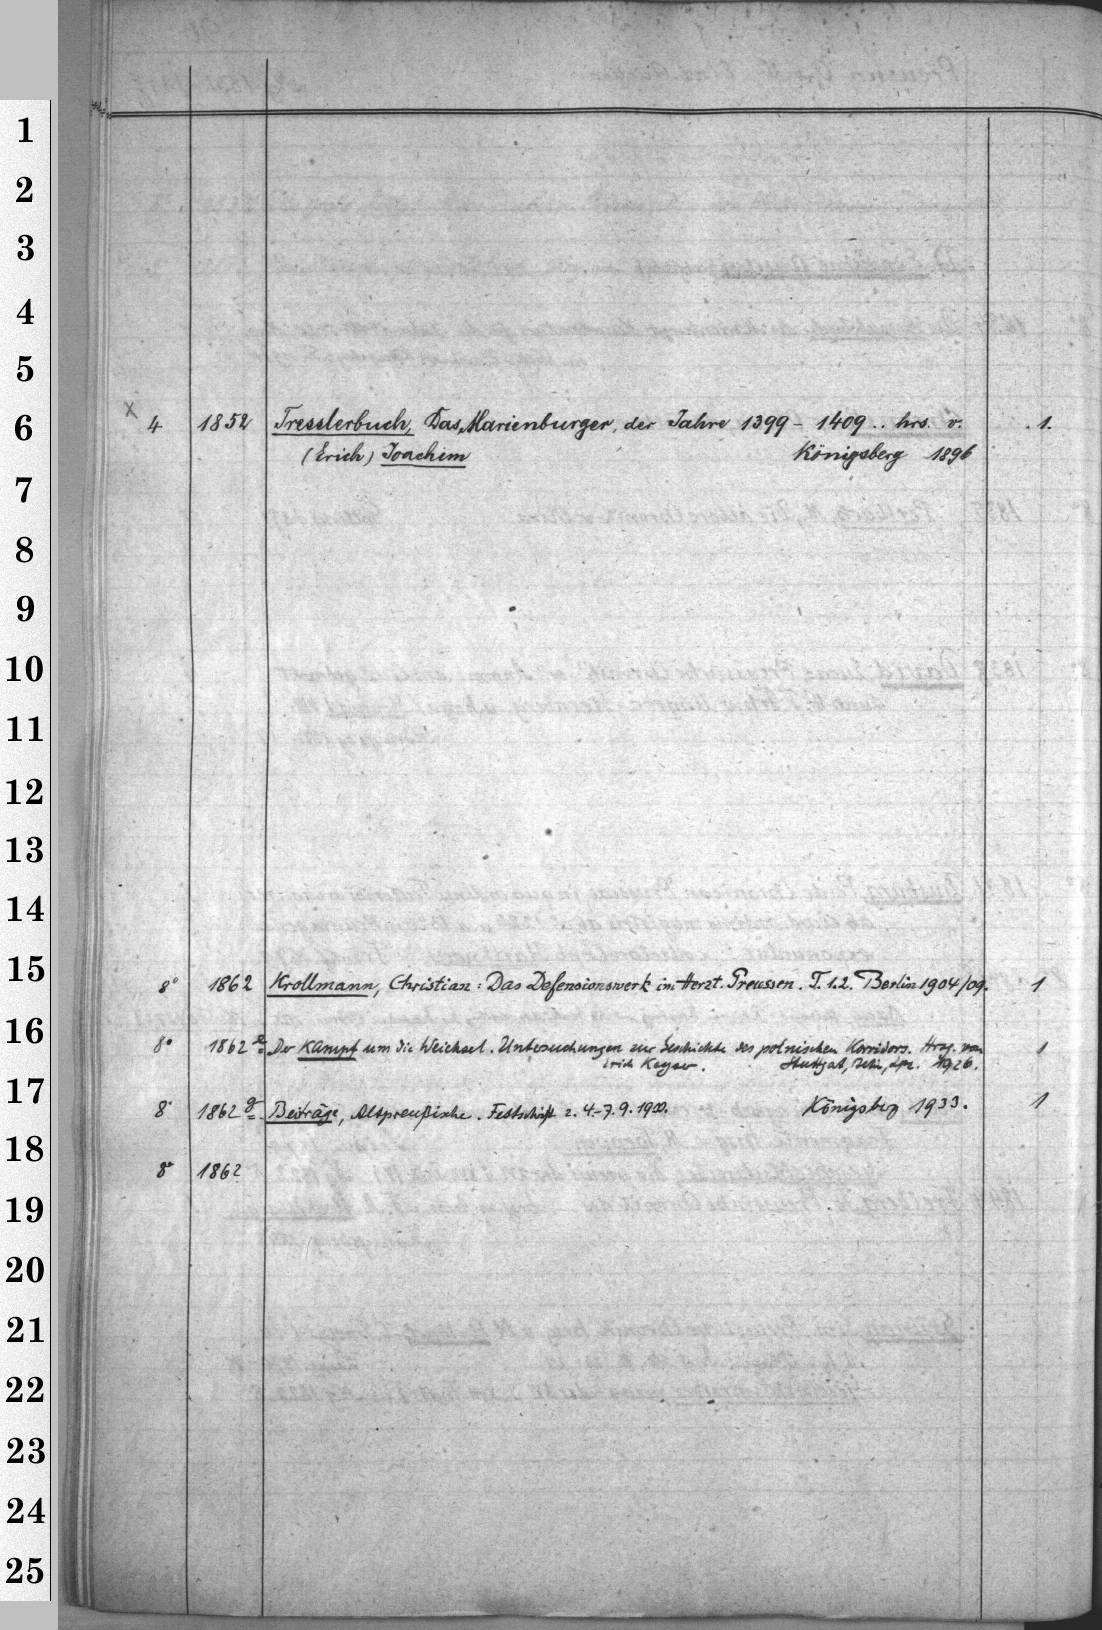 1
2
3
4
5
X
6
4 1852 Tresslerbuch, Das Marienburger, der Jahre 1399 - 1409 .. hrs. v. 1.
(Erich) Joachim Königsberg 1896
7
8
9
10
11
12
13
14
15
8° 1862 Krollmann, Christian: Das Defensionswerk im Herzt. Preussen. T. 1.2. Berlin 1904/09. 1
16
8° 1862 Der Kampf um die Weichsel. Untersuchungen zur Geschichte des polnischen Korridors. Hrsg. von 1
Erich Keyser. Stuttgat, Berlin, Lpz. 1926.
17
8° 1862 g Beiträge, Altpreußische. Festschrift z. 4.-7.9.1933. Königsberg 1933. 1
18
8° 1862
19
20
21
22
23
24
25